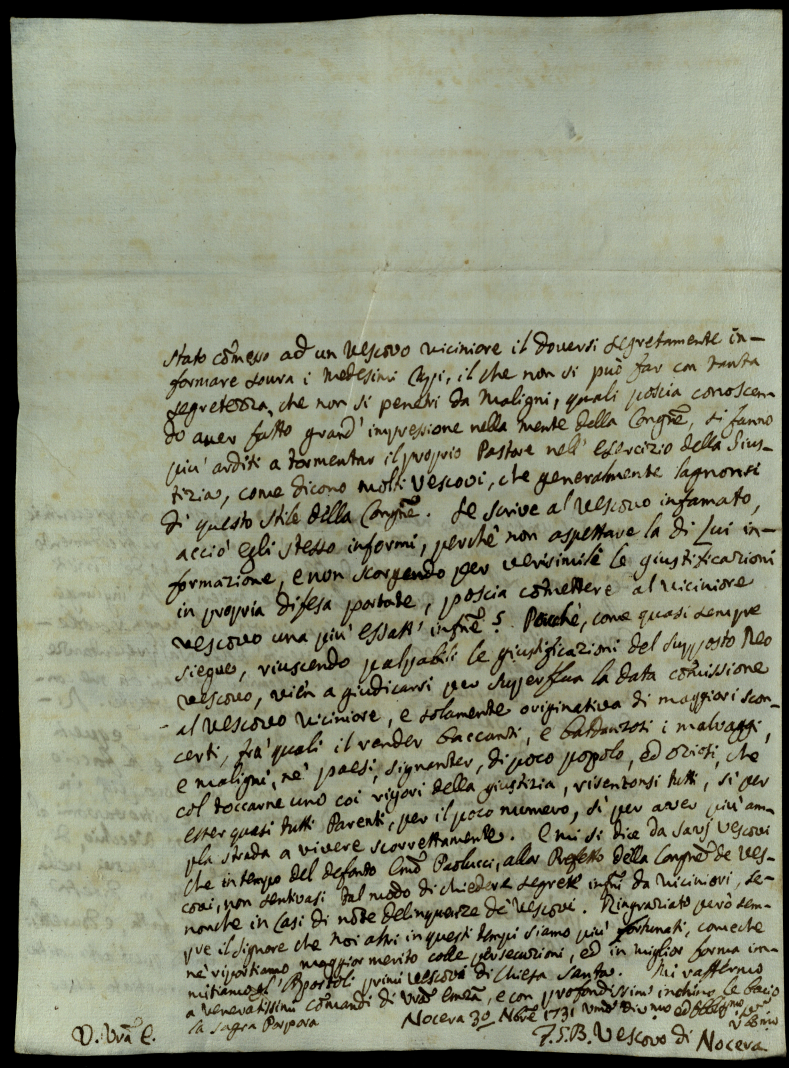 stato com̃esso ad un Vescovo viciniore il doversi segretamente in-
formare soura i medesimi Capi, il che non si può far con tanta
segretezza, che non si penetri da Maligni, quali poscia conoscen-
do aver fatto grand' impressione nella mente della Congñe, si fanno
più arditi a tormentar il proprio Pastore nell' esercizio della Gius-
tizia, come dicono molti Vescovi, che generalmente lagnonsi
di questo stile della Congñe. Se scrive al Vescovo infamato,
acciò egli stesso informi, perchè non aspettare la di Lui in-
formazione, e non scorgendo per verisimili le giustificazioni
in propria difesa portate, poscia com̃ettere al viciniore
Vescovo una più essatt' infñe? Perchè, come quasi sempre
siegue, riuscendo palpabili le giustificazioni del supposto Reo
Vescovo, vien a giudicarsi per superflua la data com̃issione
al Vescovo viciniore, e solamente originativa di maggiori scon-
certi, fra' quali il render baccanti, e baldanzosi i malvaggi,
e maligni, ne' paesi, signanter, di poco popolo, ed oziosi, che
col toccarne uno coi rigori della giustizia, risentonsi tutti, sì per
esser quasi tutti Parenti, per il poco numero, sì per aver più am-
pla strada a vivere scorrettamente. E mi si dice da Savj Vescovi
che in tempo del defonto Em̃o Paolucci, allor Prefetto della Congñe de Ves-
covi, non sentivasi tal modo di chiedere segrete infñi da viciniori, se-
nonche in Casi di note delinquenze de' Vescovi. Ringraziato però sem-
pre il Signore che noi altri in questi tempi siamo più fortunati, comeche
ne riportiamo maggior merito colle persecuzioni, ed in miglior forma im-
mitiamo gl' Apostoli primi Vescovi di Chiesa Santa. Mi raffermo
a veneratissimi com̃andi di Vrã Emzã, e con profondissimo inchino le bacio
la Sagra Porpora
Nocera 30 Nbre 1731
D. Vrã E.
F.S.B. Vescovo di Nocera